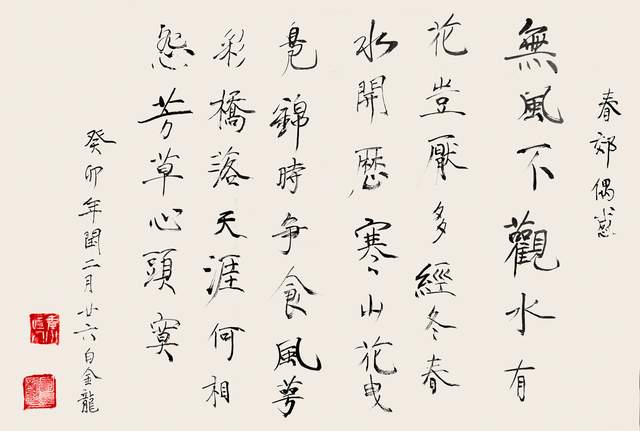 春郊偶感
無風不觀水有
花豈厭多經冬春
水開歷寒山花曳
鳧錦時爭食風萼
彩橋落天涯何相
怨芳草心頭寞
癸卯年閏二月廿六白金龍